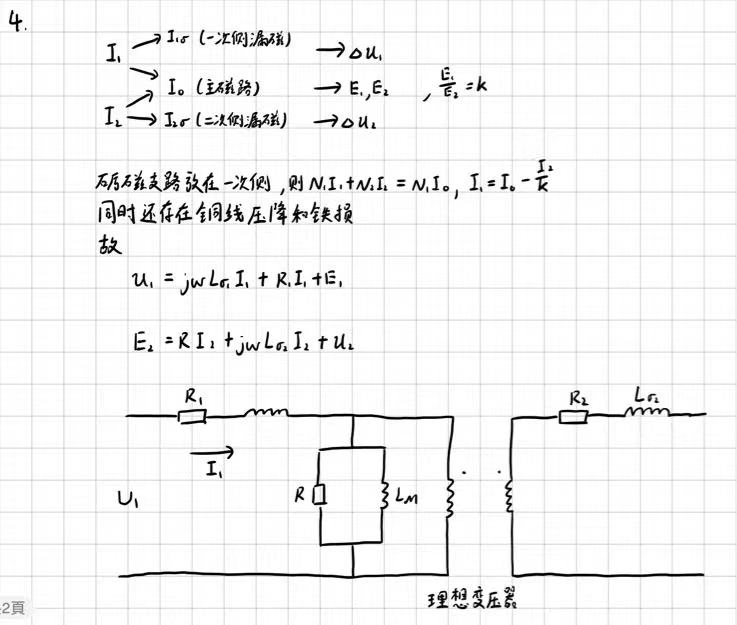 4.
I₁ → I₁σ (一次侧漏磁) → ΔU₁
I₀ (主磁路) → E₁,E₂ , E₁/E₂=k
I₂ → I₂σ (二次侧漏磁) → ΔU₂
励磁支路放在一次侧,则 N₁I₁+N₂I₂ = N₁I₀, I₁=I₀-I₂/k
同时还存在铜线压降和铁损
故
U₁ = jωLσ₁I₁ + R₁I₁+E₁
E₂ = R I₂ + jωLσ₂I₂ + U₂
R₁ R₂ Lσ₂
I₁
U₁ R LM
理想变压器
2頁